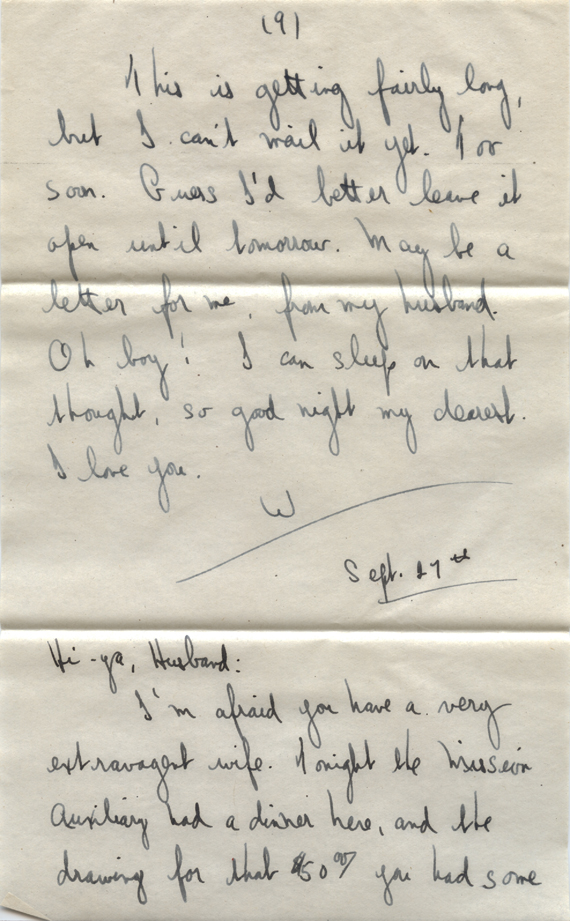 (9)
This is getting fairly long,
but I can't mail it yet. Too
soon. Guess I'd better leave it
open until tomorrow. May be a
letter for me, from my husband.
Oh boy! I can sleep on that
thought, so good night my dearest.
I love you.
W
Sept. 27th
Hi-ya, Husband:
I'm afraid you have a very
extravagent wife. Tonight the Mission
Auxiliary had a dinner here, and the
drawing for that $50.00 you had some